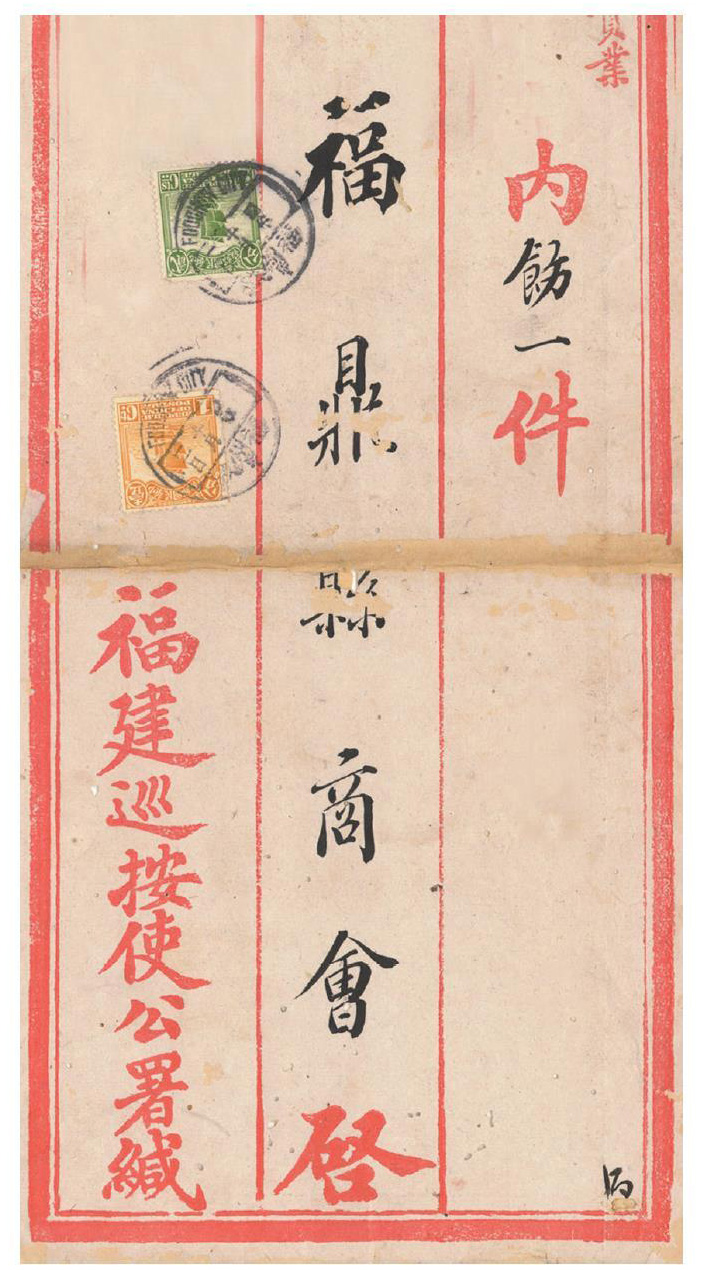 業
内飭一件
福鼎縣商會啓
福建巡按使公署緘
FOOCHOW CITY
FOOCHOW CITY
1